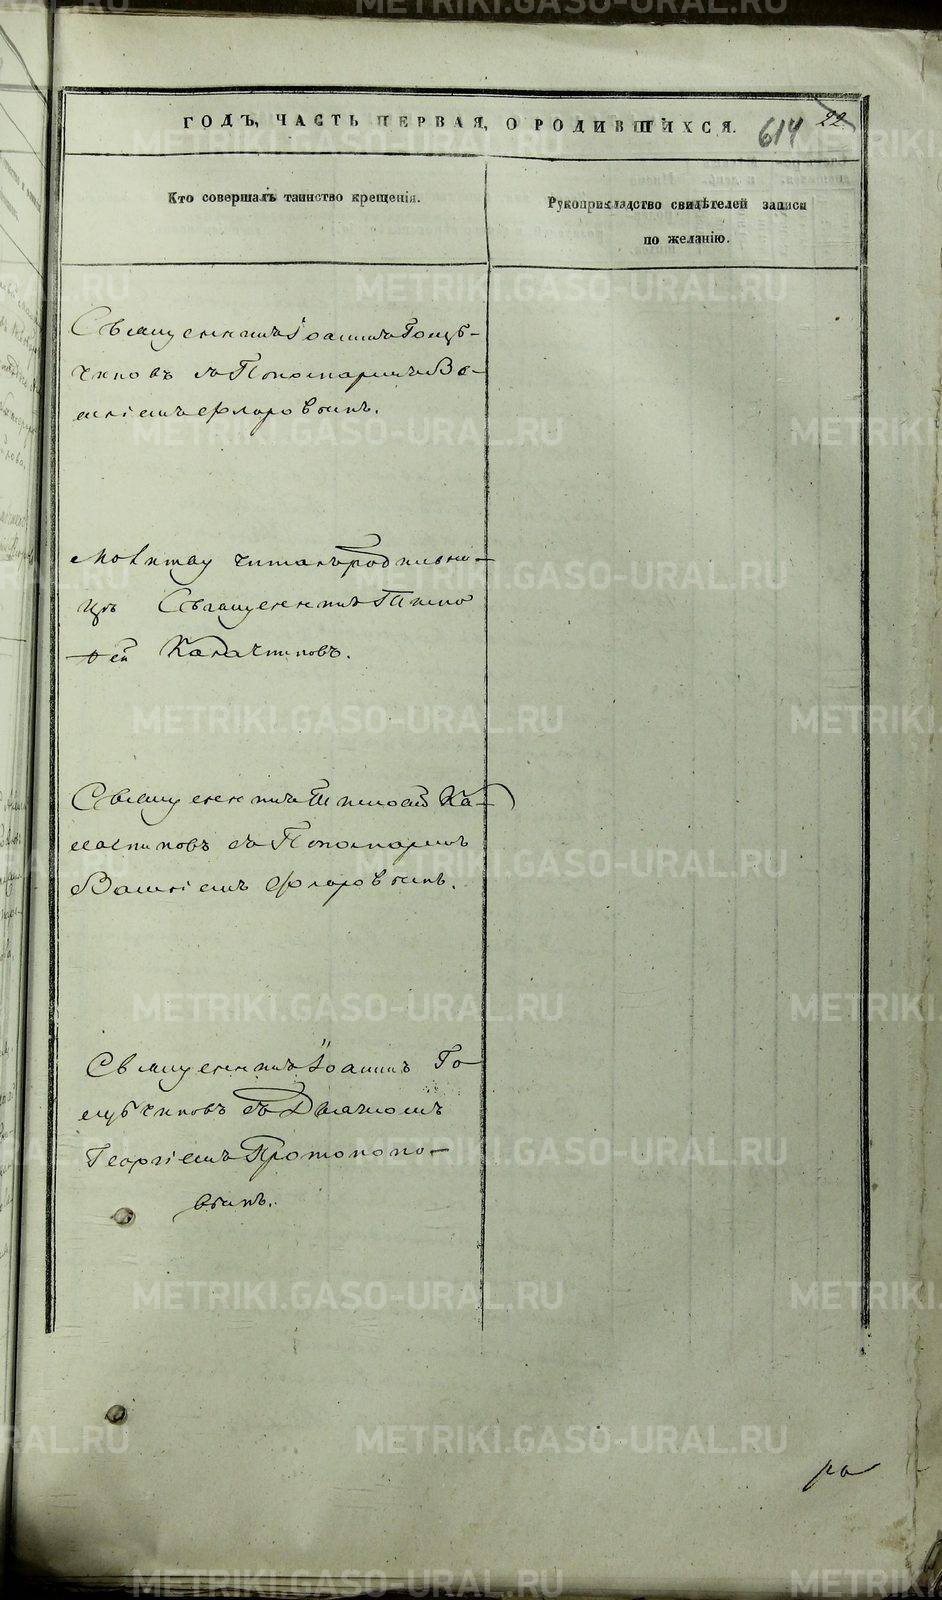 METRIKI.GASO-URAL.RU
ГОДЪ, ЧАСТЬ ПЕРВАЯ, О РОДИВШИХСЯ. 614 22
Кто совершалъ таинство крещенія.
Рукоприкладство свидѣтелей записи
по желанію.
Священникъ Іоаннъ Голуб-
чиковъ съ Пономаремъ Ва-
силіемъ Флоровымъ.
Молитву читалъ родильни-
цѣ Священникъ Тимо
фей Калачниковъ.
Священникъ Тимофей Ка-
лачниковъ съ Пономаремъ
Василіемъ Флоровымъ.
Священникъ Іоаннъ Го-
лубчиковъ съ Дьячкомъ
Георгіемъ Протопопо-
вымъ.